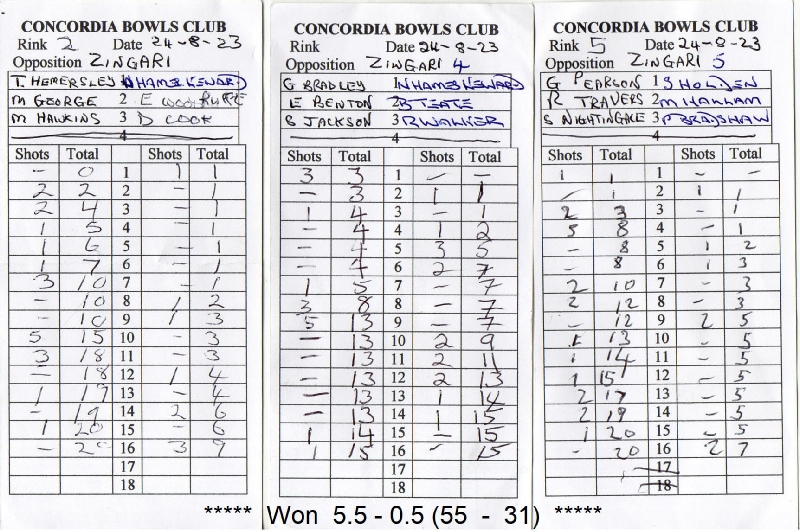 CONCORDIA BOWLS CLUB
Rink 2 Date 24-8-23
Opposition ZINGARI
T. HEMERSLEY 1
M GEORGE 2 E
M HAWKINS 3 D COOK
4
Shots Total Shots Total
- 0 1 1 1
2 2 2 - 1
2 4 3 - 1
1 5 4 - 1
1 6 5 - 1
1 7 6 - 1
3 10 7 - 1
- 10 8 1 2
- 10 9 1 3
5 15 10 - 3
3 18 11 - 3
- 18 12 1 4
1 19 13 - 4
- 19 14 2 6
1 20 15 - 6
- 20 16 3 9
17
18
CONCORDIA BOWLS CLUB
Rink Date 24-8-23
Opposition ZINGARI 4
G BRADLEY 1
E BENTON 2 B TEATE
B JACKSON 3 R WALKER
4
Shots Total Shots Total
3 3 1 - -
- 3 2 1 1
1 4 3 - 1
- 4 4 1 2
- 4 5 3 5
- 4 6 2 7
1 5 7 - 7
3 8 8 - 7
5 13 9 - 7
- 13 10 2 9
- 13 11 2 11
- 13 12 2 13
- 13 13 1 14
- 13 14 1 15
1 14 15 - 15
1 15 16 - 15
17
18
CONCORDIA BOWLS CLUB
Rink 5 Date 24-8-23
Opposition ZINGARI 5
G PEARSON 1 S HOLDEN
R TRAVERS 2 M HALLAM
S NIGHTINGALE 3 P BRADSHAW
4
Shots Total Shots Total
1 1 1 - -
- 1 2 1 1
2 3 3 - 1
5 8 4 - 1
- 8 5 1 2
- 8 6 1 3
2 10 7 - 3
2 12 8 - 3
- 12 9 2 5
1 13 10 - 5
1 14 11 - 5
1 15 12 - 5
2 17 13 - 5
2 19 14 - 5
1 20 15 - 5
- 20 16 2 7
17
18
***** Won 5.5 - 0.5 (55 - 31) *****